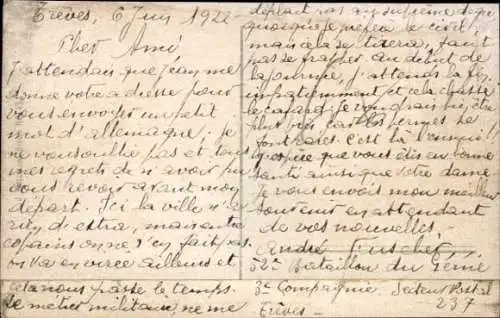 Trèves, 6 Juin 1922
Cher Ami
J'attendais que Jean me
donne votre adresse pour
vous envoyer un petit
mot d'allemagne. je
ne vous oublie pas et tous
mes regrets de n'avoir pu
vous revoir avant mon
départ. Ici la ville n'a
rien d'extra, mais entre
copains on ne s'en fait pas
on va en virée ailleurs et
cela nous passe le temps.
Le métier militaire ne me
déplait pas
quoique je préfère le civil,
mais cela se tirera, faut
pas se frapper. au début de
la journée, j'attends la fin
impatiemment et cela chasse
le cafard. je voudrais bien être
plus près, car les permes se
font rares. C'est là l'ennui
j'espère que vous êtes en bonne
santé ainsi que votre dame.
Je vous envois mon meilleur
souvenir en attendant
de vos nouvelles.
André
52e Bataillon du Génie
3e Compagnie. Secteur Postal
237
Trèves